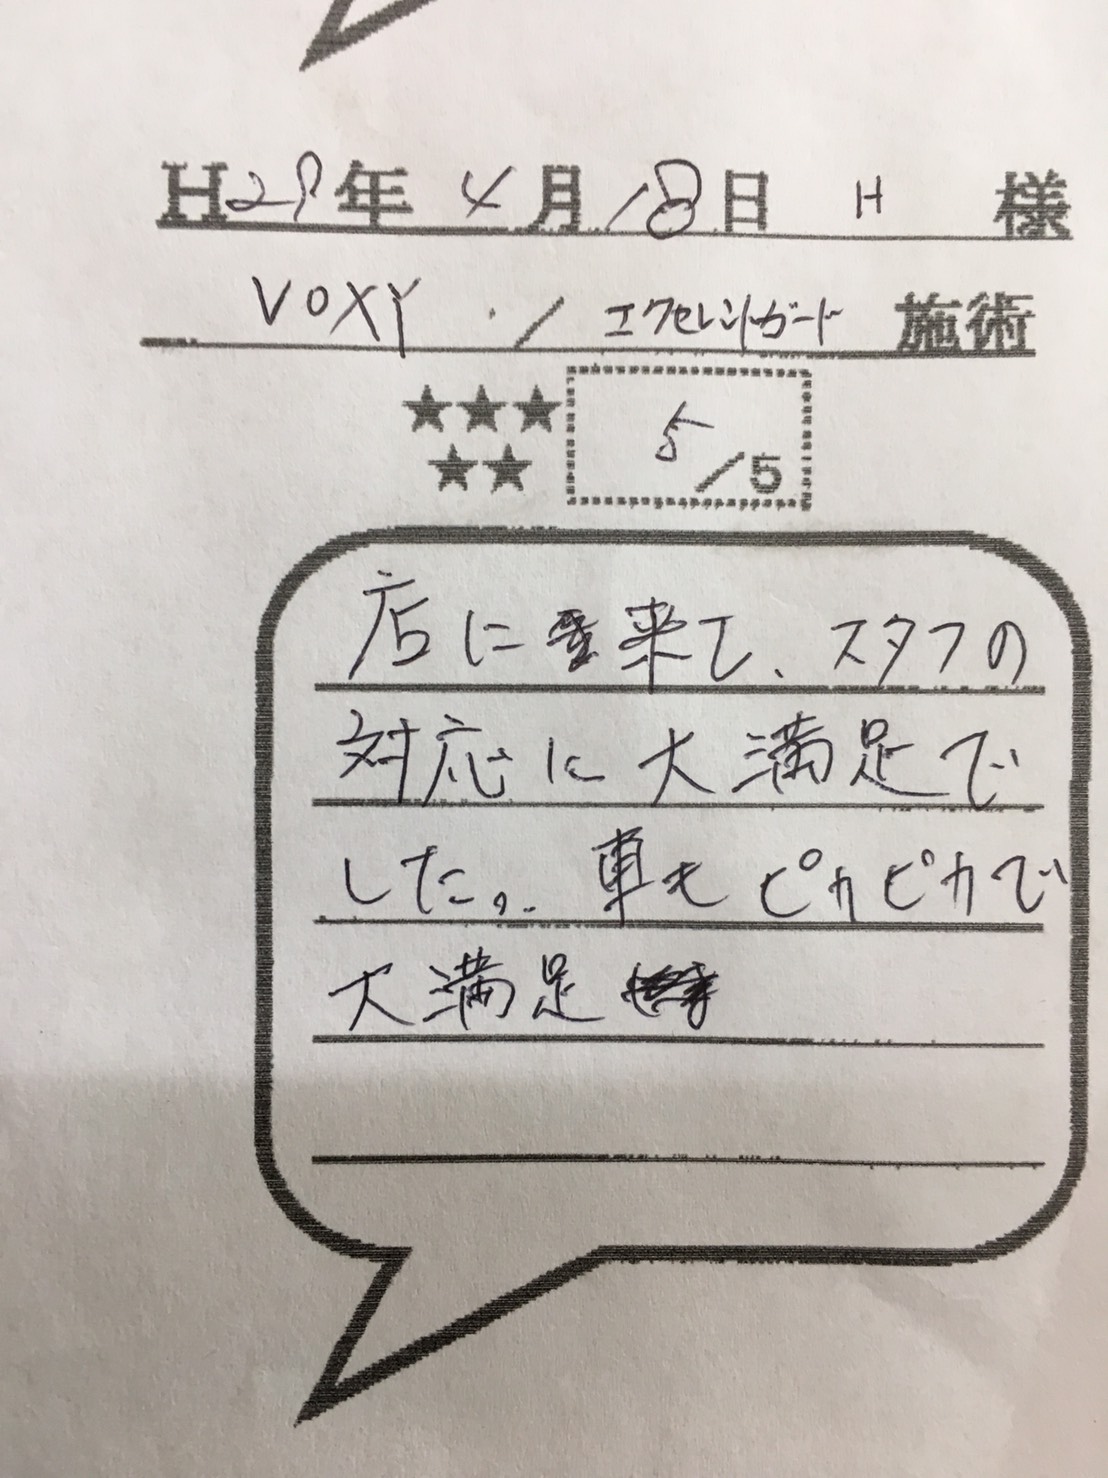 H29年 4月18日 H 様
VOXY ・/ エクセレントガード 施術
★★★
5/5
★★
店に来て、スタフの
対応に大満足で
した。車もピカピカで
大満足